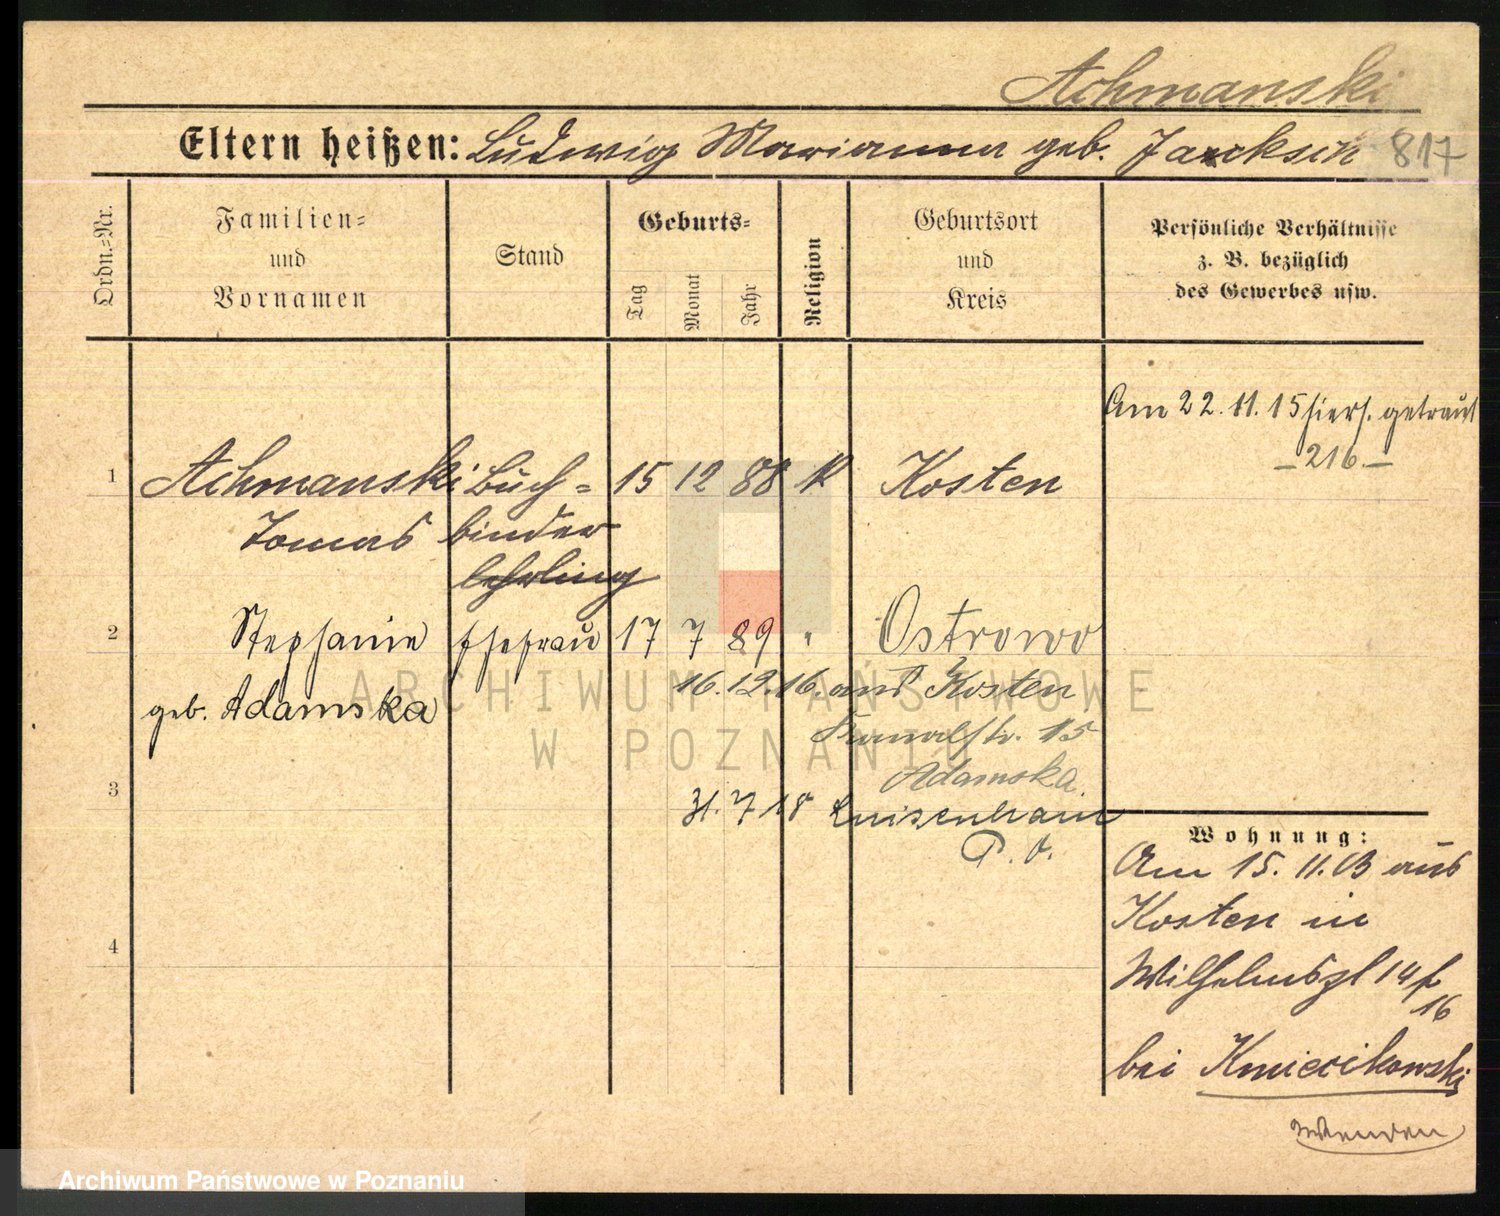 Achmanski
Eltern heißen: Ludwig Marianna geb. Jackscih 817
Ordn.=Nr.
Familien=
und
Vornamen
Stand
Geburts=
Tag
Monat
Jahr
Religion
Geburtsort
und
Kreis
Persönliche Verhältnisse
z. B. bezüglich
des Gewerbes usw.
Am 22.11.15 hiers. getraut
–216–
1 Achmanski Buch= 15 12 88 K Kosten
Tomas binder
lehrling
2 Stephanie Ehefrau 17 7 89 " Ostrowo
geb. Adamska
16.12.16. aus Kosten
15
Adamska.
3
31.7.18 Luisenhain
P. O.
Wohnung:
Am 15.11.03 aus
Kosten in
Wilhelmspl 14
16
4
bei Kmiecikowski
wenden
ARCHIWUM PAŃSTWOWE
W POZNANIU
Archiwum Państwowe w Poznaniu